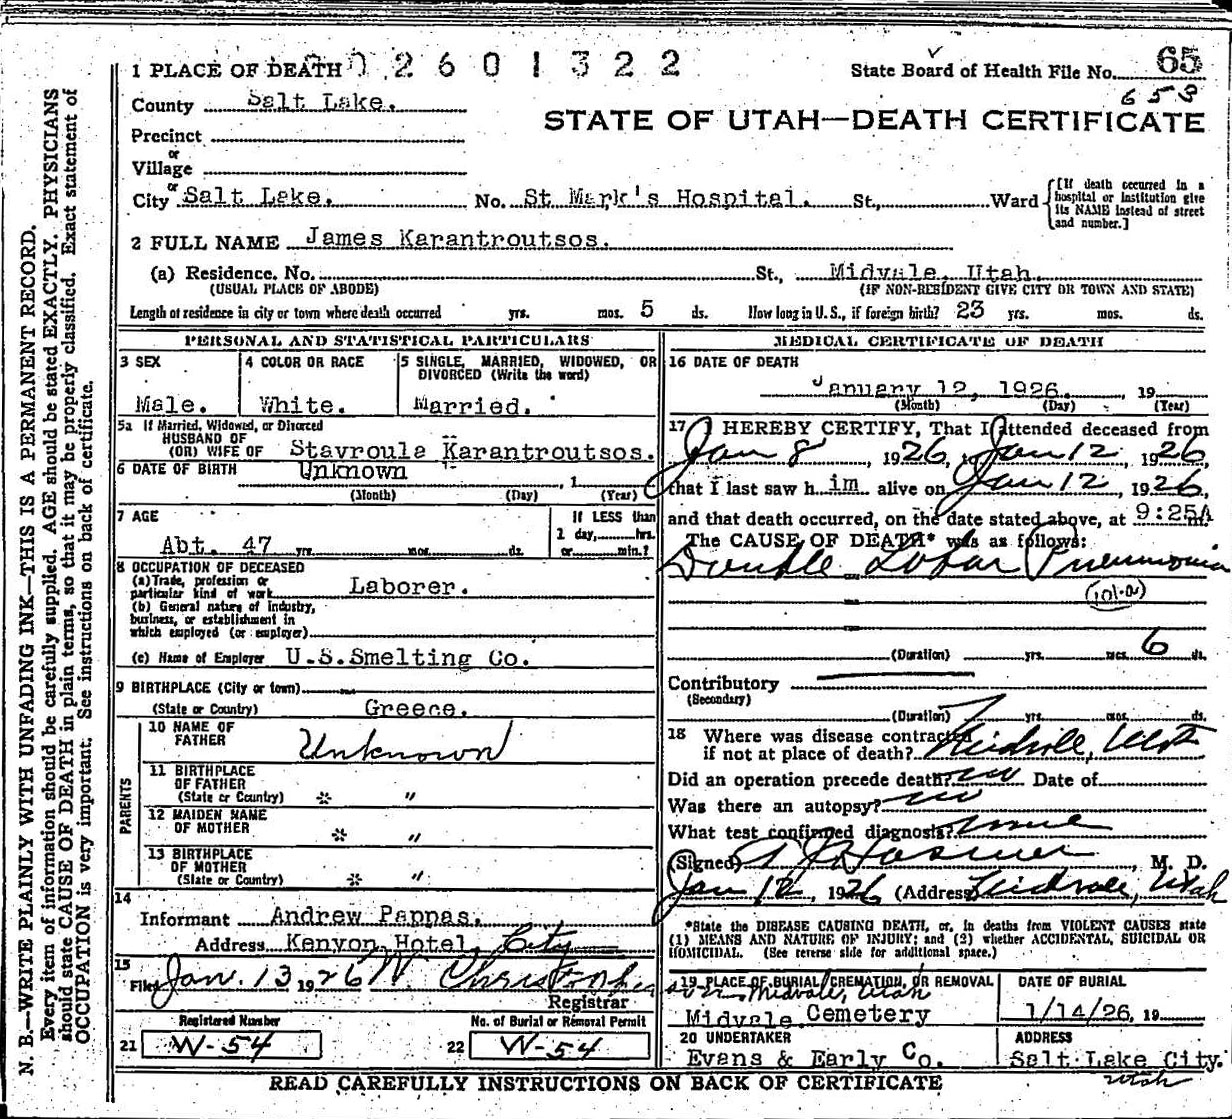 1 PLACE OF DEATH 02601322
State Board of Health File No. 65
653
County Salt Lake.
STATE OF UTAH—DEATH CERTIFICATE
Precinct
or
Village
or
City Salt Lake. No. St Mark's Hospital. St., Ward
[If death occurred in a hospital or institution give its NAME instead of street and number.]
2 FULL NAME James Karantroutsos.
(a) Residence. No. St., Midvale, Utah
(USUAL PLACE OF ABODE) (IF NON-RESIDENT GIVE CITY OR TOWN AND STATE)
Length of residence in city or town where death occurred yrs. mos. 5 ds. How long in U.S., if foreign birth? 23 yrs. mos. ds.
PERSONAL AND STATISTICAL PARTICULARS
3 SEX
Male.
4 COLOR OR RACE
White.
5 SINGLE, MARRIED, WIDOWED, OR DIVORCED (Write the word)
Married.
5a If Married, Widowed, or Divorced
HUSBAND OF
(OR) WIFE OF Stavroula Karantroutsos.
6 DATE OF BIRTH Unknown
, 1
(Month) (Day) (Year)
7 AGE
Abt. 47 yrs. mos. ds.
If LESS than
1 day, hrs.
or min.?
8 OCCUPATION OF DECEASED
(a) Trade, profession or
particular kind of work Laborer.
(b) General nature of industry,
business, or establishment in
which employed (or employer)
(c) Name of Employer U.S.Smelting Co.
9 BIRTHPLACE (City or town)
(State or Country) Greece.
PARENTS
10 NAME OF
FATHER Unknown
11 BIRTHPLACE
OF FATHER
(State or Country) * "
12 MAIDEN NAME
OF MOTHER * "
13 BIRTHPLACE
OF MOTHER
(State or Country) * "
14
Informant Andrew Pappas.
Address Kenyon Hotel, City
15
Filed Jan. 13 1926 W Christopher
Registrar
Registered Number No. of Burial or Removal Permit
21 W-54 22 W-54
MEDICAL CERTIFICATE OF DEATH
16 DATE OF DEATH
January 12, 1926. 19
(Month) (Day) (Year)
17 I HEREBY CERTIFY, That I attended deceased from
Jan 8 1926, Jan 12 1926,
that I last saw h im alive on Jan 12, 1926,
and that death occurred, on the date stated above, at 9:25A m.
The CAUSE OF DEATH* was as follows:
Double Lobar Pneumonia
(101-a)
(Duration) yrs. mos. 6 ds.
Contributory
(Secondary)
(Duration) yrs. mos. ds.
18 Where was disease contracted
if not at place of death? Midvale, Utah
Did an operation precede death? no Date of
Was there an autopsy? no
What test confirmed diagnosis? none
(Signed) Hosmer, M. D.
Jan 12, 1926 (Address) Midvale, Utah
*State the DISEASE CAUSING DEATH, or, in deaths from VIOLENT CAUSES state
(1) MEANS AND NATURE OF INJURY; and (2) whether ACCIDENTAL, SUICIDAL OR
HOMICIDAL. (See reverse side for additional space.)
19 PLACE OF BURIAL, CREMATION, OR REMOVAL
Midvale, Utah
Midvale Cemetery
DATE OF BURIAL
1/14/26, 19
20 UNDERTAKER
Evans & Early Co.
ADDRESS
Salt Lake City.
Utah
READ CAREFULLY INSTRUCTIONS ON BACK OF CERTIFICATE
N. B.—WRITE PLAINLY WITH UNFADING INK—THIS IS A PERMANENT RECORD.
Every item of information should be carefully supplied. AGE should be stated EXACTLY. PHYSICIANS
should state CAUSE OF DEATH in plain terms, so that it may be properly classified. Exact statement of
OCCUPATION is very important. See instructions on back of certificate.